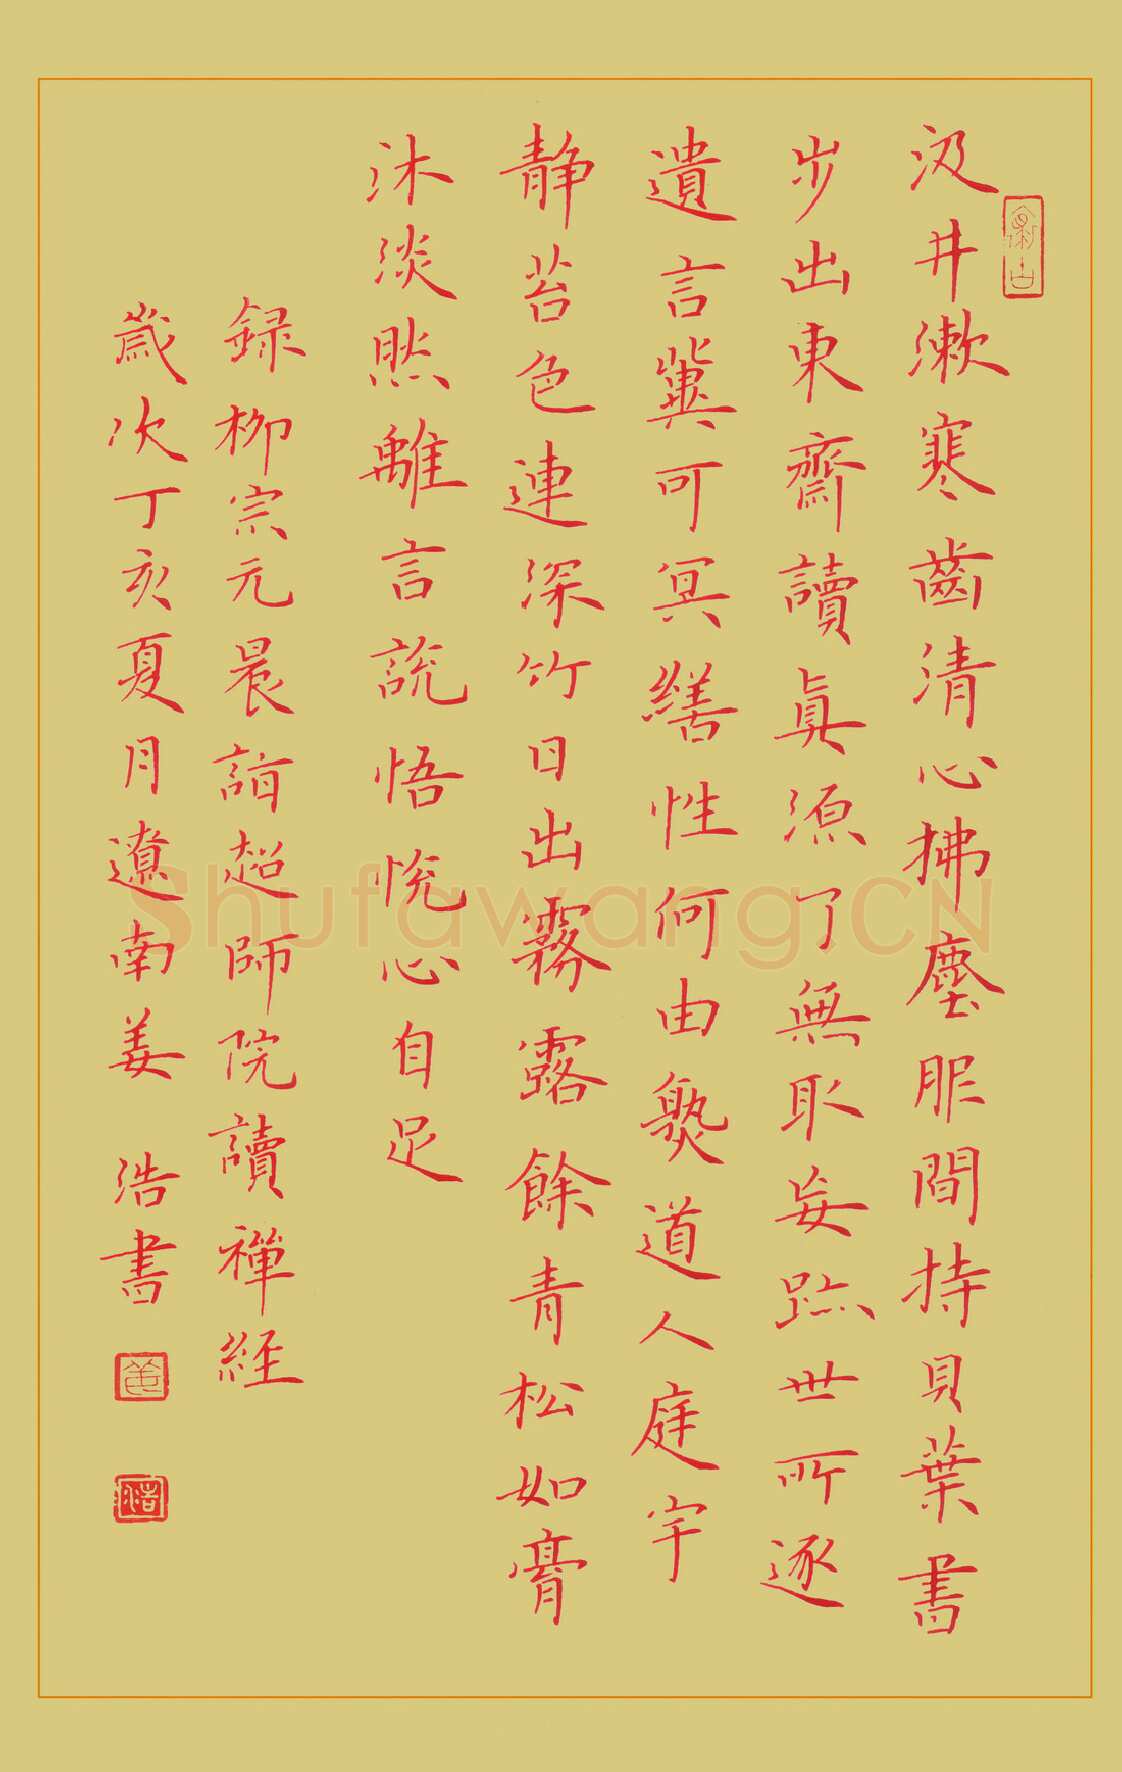 汲井漱寒齒清心拂塵服閒持貝葉書
步出東齋讀真源了無取妄跡世所逐
遺言冀可冥繕性何由熟道人庭宇
靜苔色連深竹日出霧露餘青松如膏
沐淡然離言說悟悅心自足
録柳宗元晨詣超師院讀禪經
歲次丁亥夏月遼南姜浩書
Shufawang.CN